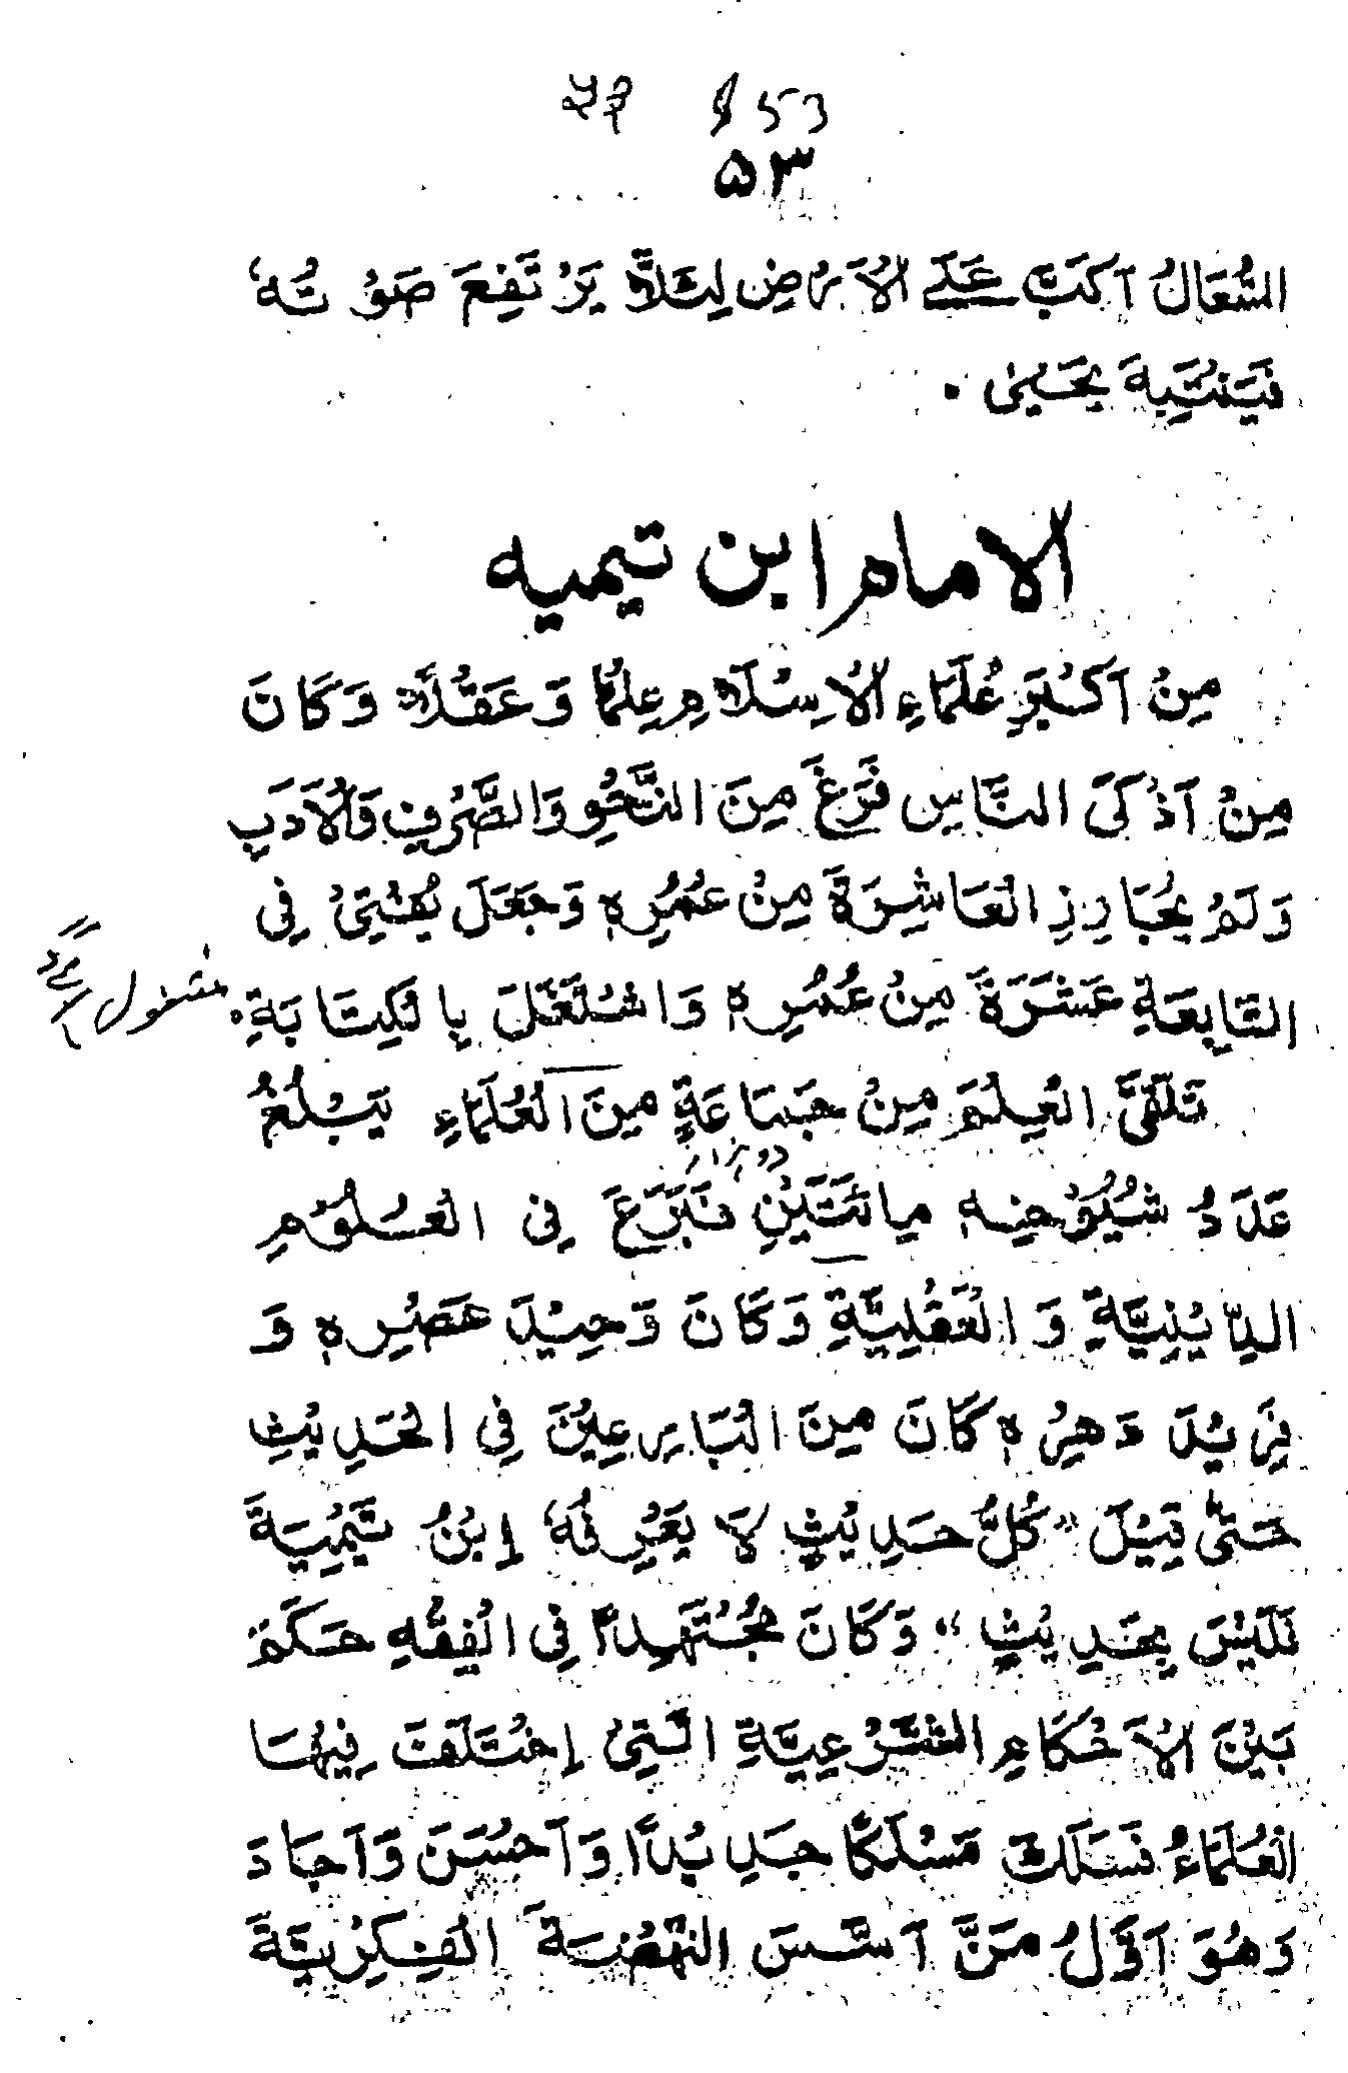 53
۵۳
السُّعَالُ اَكَبَّ عَلَى الْاَرْضِ لِئَلَّا يَرْتَفِعَ صَوْتُهٗ
فَيَنْتَبِهَ يَحْيىٰ ۔
الامام ابن تيميه
مِنْ اَكْبَرِ عُلَمَاءِ الْاِسْلَامِ عِلْمًا وَعَقْلًا وَكَانَ
مِنْ اَذْكَى النَّاسِ فَرَغَ مِنَ النَّحْوِ وَالصَّرْفِ وَالْاَدَبِ
وَلَمْ يُجَاوِزِ الْعَاشِرَةَ مِنْ عُمُرِهٖ وَجَعَلَ يُفْتِيْ فِي
السَّابِعَةِ عَشَرَةَ مِنْ عُمُرِهٖ وَاشْتَغَلَ بِالْكِتَابَةِ۔ مشغول
تَلَقَّى الْعِلْمَ مِنْ جَمَاعَةٍ مِنَ الْعُلَمَاءِ يَبْلُغُ
عَدَدُ شُيُوْخِهٖ مِائَتَيْنِ فَبَرَعَ فِي الْعُلُوْمِ
الدِّيْنِيَّةِ وَالْعَقْلِيَّةِ وَكَانَ وَحِيْدَ عَصْرِهٖ وَ
فَرِيْدَ دَهْرِهٖ كَانَ مِنَ الْبَارِعِيْنَ فِي الْحَدِيْثِ
حَتّٰى قِيْلَ "كُلُّ حَدِيْثٍ لَا يَعْرِفُهٗ اِبْنُ تَيْمِيَةَ
فَلَيْسَ بِحَدِيْثٍ" وَكَانَ مُجْتَهِدًا فِي الْفِقْهِ حَكَمَ
بَيْنَ الْاَحْكَامِ الشَّرْعِيَّةِ الَّتِيْ اِخْتَلَفَ فِيْهَا
الْعُلَمَاءُ فَسَلَكَ مَسْلَكًا جَدِيْدًا وَاَحْسَنَ وَاَجَادَ
وَهُوَ اَوَّلُ مَنْ اَسَّسَ النَّهْضَةَ الْفِكْرِيَّةَ